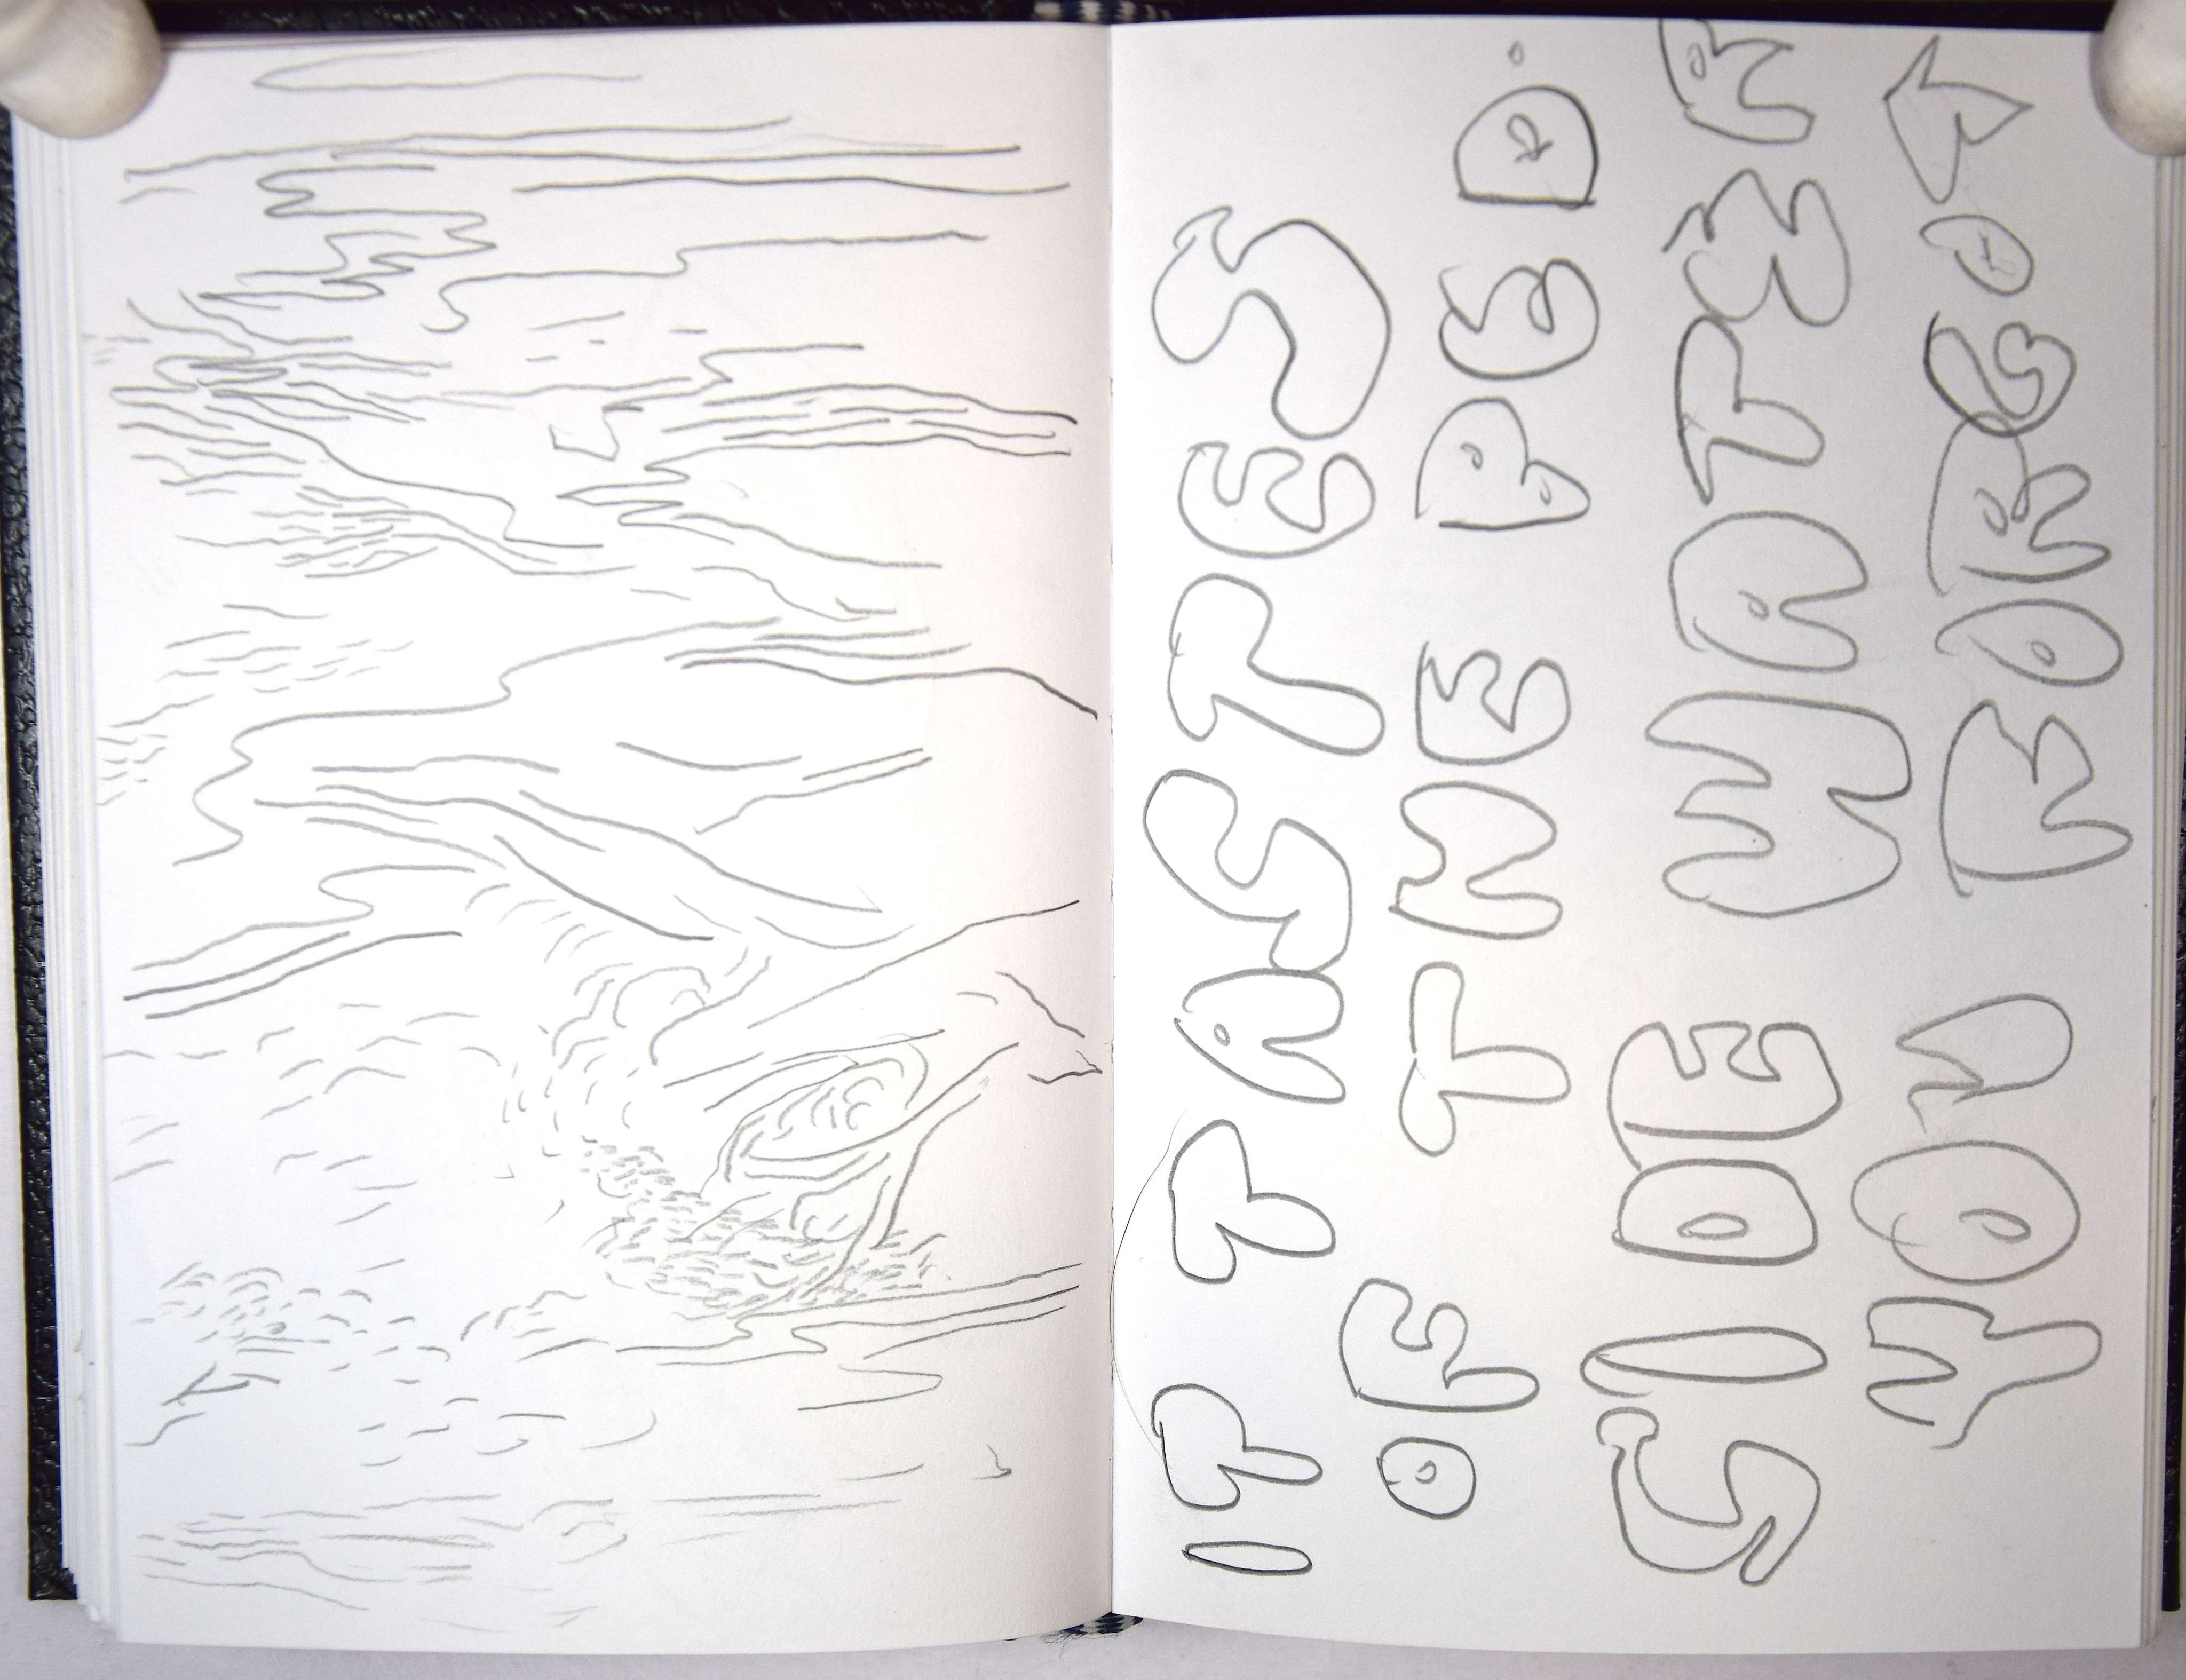 IT TASTES
OF THE BED-
SIDE WATER
YOU FORGOT